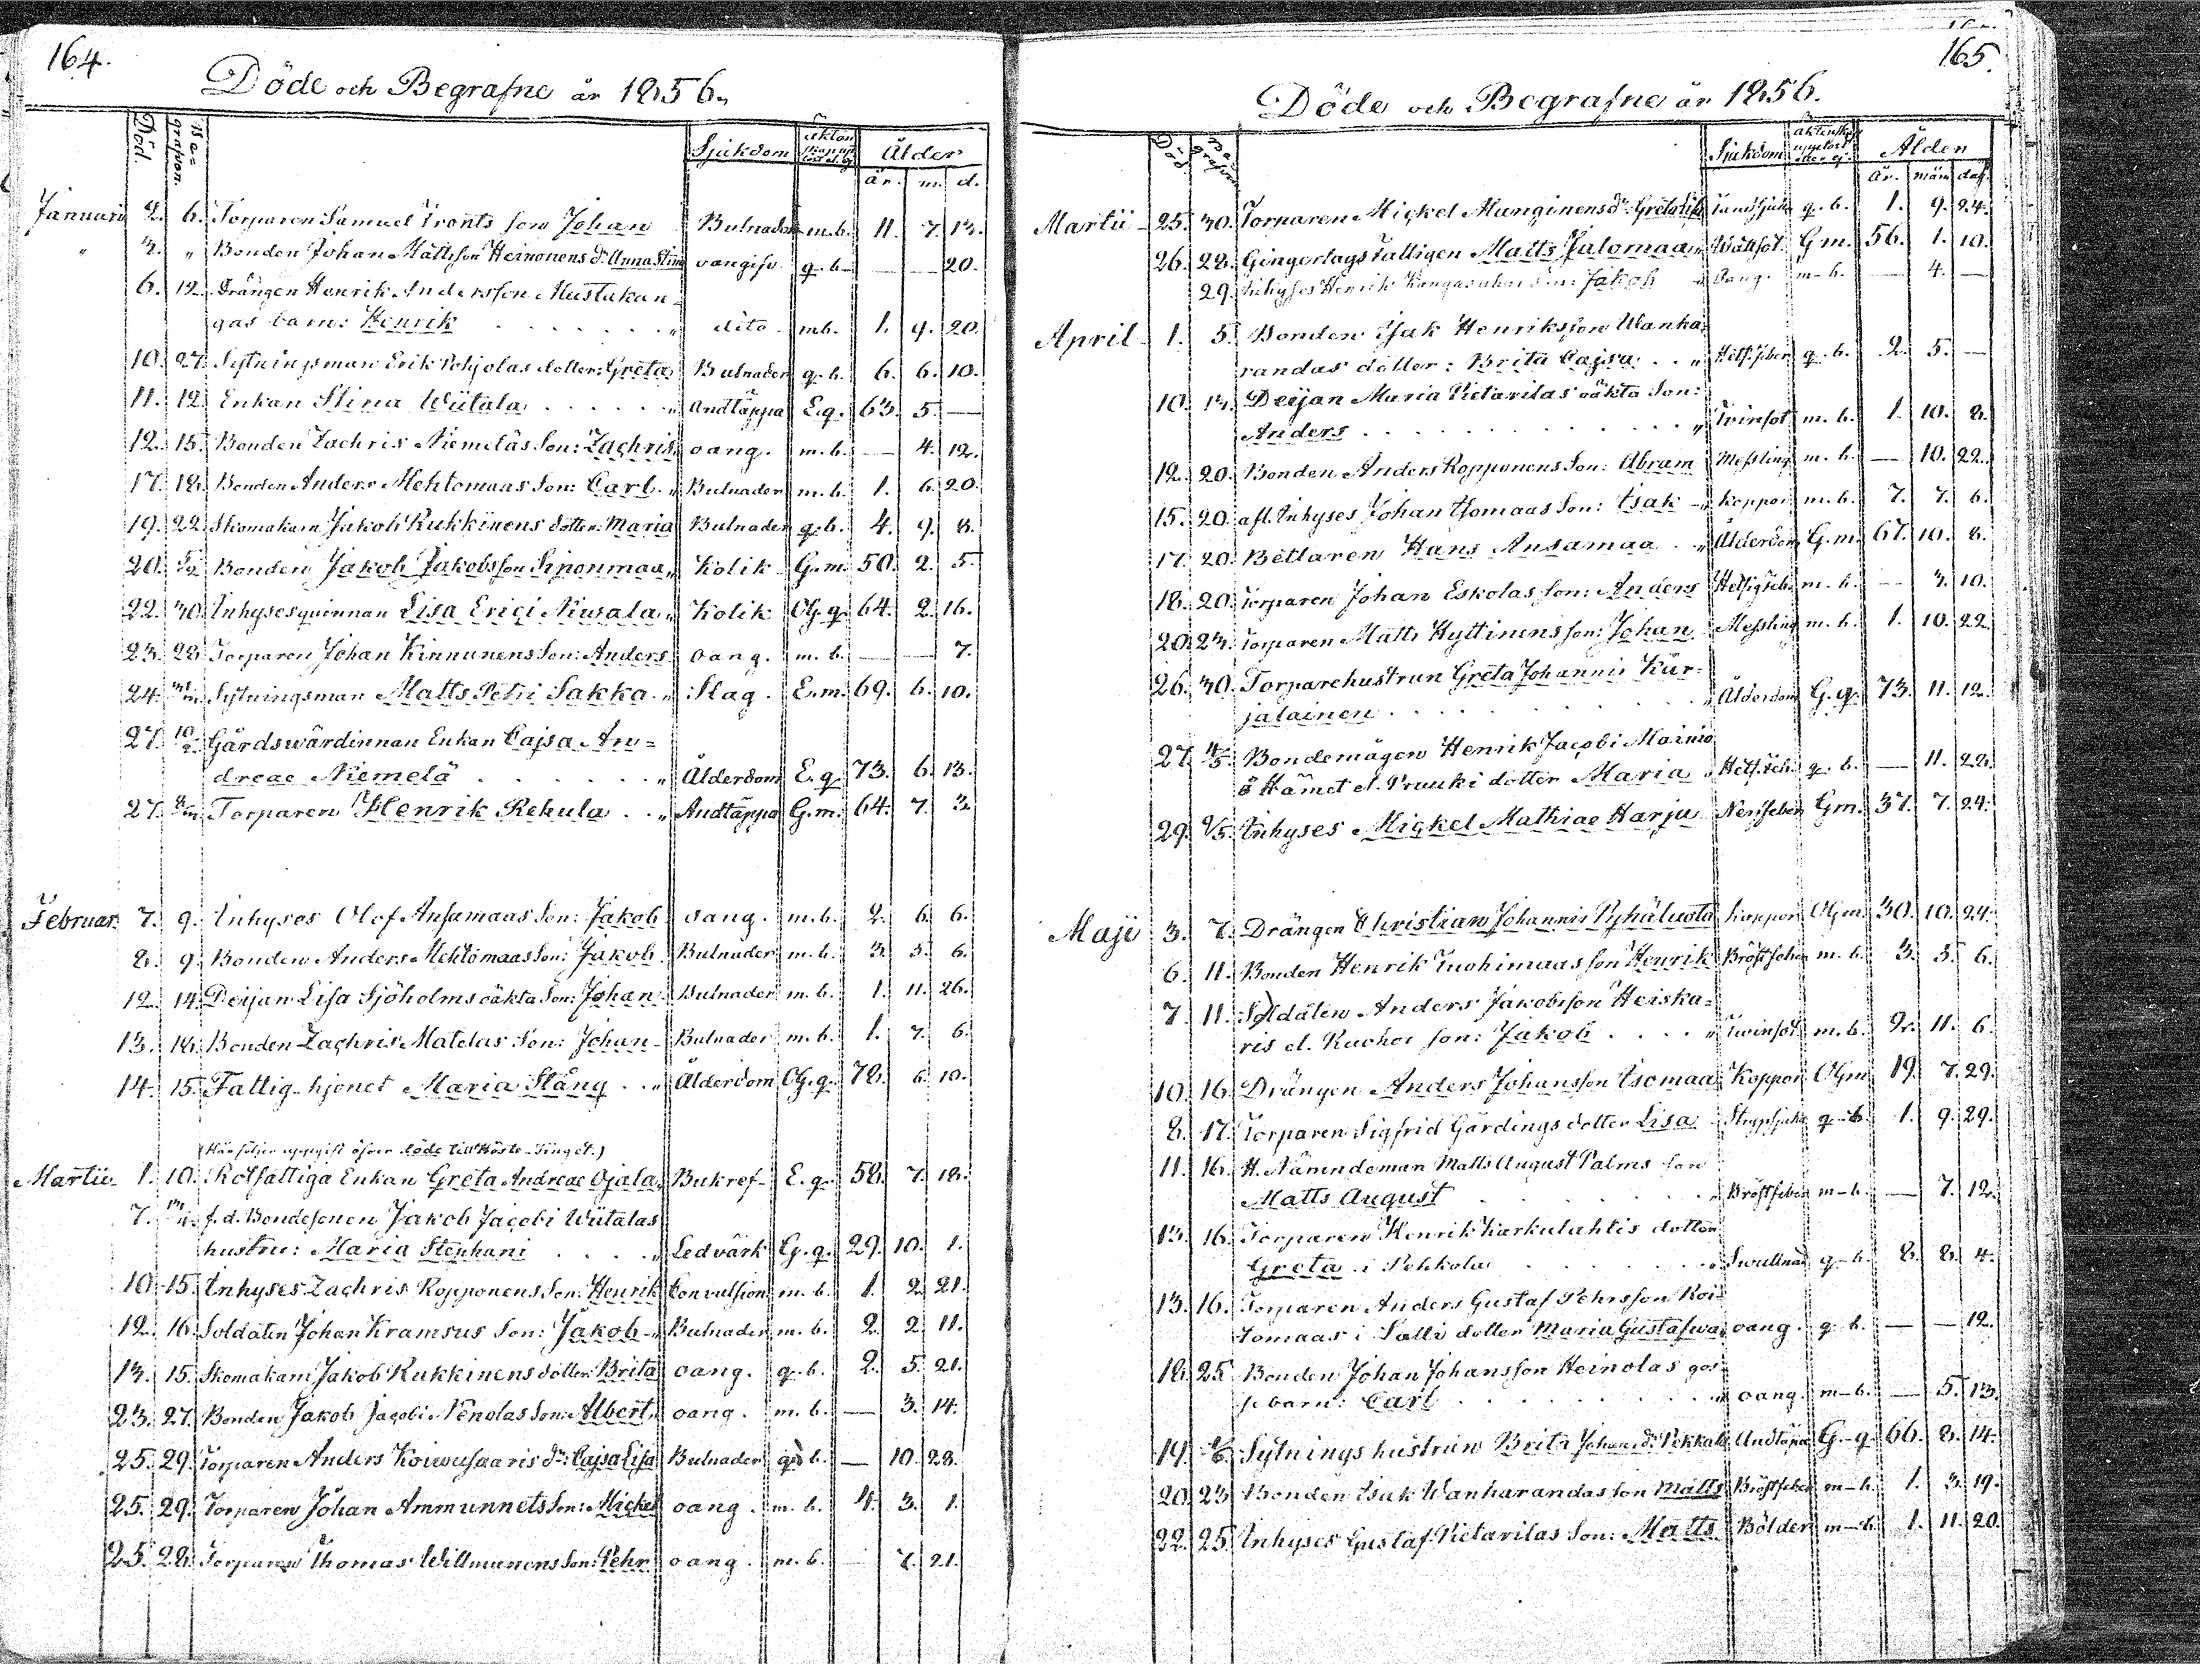 164.
Döde och Begrafne år 1856.
Död. Be=grafven. Sjukdom Ålder
år. m. d.
Januari 2. 6. Torparen Samuel Tronts son Johan Bulnader m.b. 11. 7. 13.
" 3. " Bonden Johan Mattsson Heinonens dr Anna Stina oangifv. q.b. — — 20.
6. 12. Drängen Henrik Andersson Mustakan=
gas barn: Henrik . . . . . . " dito m.b. 1. 9. 20.
10. 27. Sytningsman Erik Pohjolas dotter: Greta Bulnader q.b. 6. 6. 10.
11. 12. Enkan Stina Wiitala . . . . . " Andtäppa E.q. 63. 5. —
12. 15. Bonden Zachris Niemeläs son: Zachris oang. m.b. — 4. 12.
17. 18. Bonden Anders Mehtomaas son: Carl " Bulnader m.b. 1. 6. 20.
19. 22. Skomakarn Jakob Kukkinens dotter: Maria Bulnader q.b. 4. 9. 8.
20. 3/2 Bonden Jakob Jakobsson Siponmaa " Kolik G.m. 50. 2. 5.
22. 30. Inhysesquinnan Lisa Erici Niusala " Kolik Og.q. 64. 2. 16.
23. 28. Torparen Johan Kinnunens son: Anders oang. m.b. — — 7.
24. Sytningsman Matts Petri Sakka " Slag. E.m. 69. 6. 10.
27. 10/2 Gårdswärdinnan Enkan Cajsa An=
dreae Niemelä . . . . . " Ålderdom E.q. 73. 6. 13.
27. Torparen Henrik Rekula . . " Andtäppa G.m. 64. 7. 3.
Februar. 7. 9. Inhyses Olof Ansamaas son: Jakob oang. m.b. 2. 6. 6.
8. 9. Bonden Anders Mehtomaas son: Jakob Bulnader m.b. 3. 3. 6.
12. 14. Deijan Lisa Sjöholms oäkta son: Johan Bulnader m.b. 1. 11. 26.
13. 18. Bonden Zachris Matelas son: Johan Bulnader m.b. 1. 7. 6.
14. 15. Fattig-hjonet Maria Stång . . " Ålderdom Og.q. 78. 6. 10.
(Här följer uppgift öfver döde till Höste-Tinget.)
Martii 1. 10. Rotfattiga Enkan Greta Andreae Ojala " Bukref E.q. 58. 7. 18.
7. f.d. Bondesonen Jakob Jacobi Wiitalas
hustru: Maria Stephani . . . . " Ledvärk G.q. 29. 10. 1.
10. 15. Inhyses Zachris Kopponens son: Henrik Convulsion m.b. 1. 2. 21.
12. 16. Soldaten Johan Kramsus son: Jakob " Bulnader m.b. 2. 2. 11.
13. 15. Skomakarn Jakob Kukkinens dotter Brita oang. q.b. 2. 5. 21.
23. 27. Bonden Jakob Jacobi Nenolas son: Albert " oang. m.b. — 3. 14.
25. 29. Torparen Anders Koiwusaaris dr: Cajsa Lisa Bulnader q.b. — 10. 28.
25. 29. Torparen Johan Ammunnets son: Mickel oang. m.b. 4. 3. 1.
25. 28. Torparen Thomas Willmunens son: Pehr oang. m.b. 7. 21.
165.
Döde och Begrafne år 1856.
Död Be=grafven Sjukdom Ålder
år. mån dag.
Martii 25. 30. Torparen Mickel Munginens dr: Greta Lisa Tandsjuka q.b. 1. 9. 24.
26. 28. Gingerlagsfattigen Matts Julomaa " Wattsot. G.m. 56. 1. 10.
29. Inhyses Henrik Kangasahos son: Jakob " Oang. m.b. — 4. —
April 1. 5. Bonden Isak Henriksson Wanha=
randas dotter: Brita Cajsa . . " Hetsfeber q.b. 2. 5. —
10. 13. Deijan Maria Pietarilas oäkta Son:
Anders . . . . . . . . . . . " Twinsot m.b. 1. 10. 8.
12. 20. Bonden Anders Kopponens Son: Abram Messling m.b. — 10. 22.
15. 20. afl. Inhyses Johan Isomaas Son: Isak " Koppor m.b. 7. 7. 6.
17. 20. Bettlaren Hans Ansamaa . " Ålderdom G.m. 67. 10. 8.
18. 20. Torparen Johan Eskolas son: Anders Hetsigfeb. m.b. — 3. 10.
20. 23. Torparen Matts Hyttinens son: Johan Messling m.b. 1. 10. 22.
26. 30. Torparehustrun Greta Johannis Kar=
jalainen . . . . . . . . . " Ålderdom G.q. 73. 11. 12.
27. 4/5. Bondemågen Henrik Jacobi Mainio
å Hämet el. Pruuki dotter Maria " Hetsfeb. q.b. — 11. 28.
29. Inhyses Mickel Mathiae Harju Nerffeber G.m. 37. 7. 24.
Maji 3. 7. Drängen Christian Johannis Pyhäluoto Koppor Og.m. 30. 10. 24.
6. 11. Bonden Henrik Tuohimaas son Henrik Bröstfeber m.b. 3. 5. 6.
7. 11. Soldaten Anders Jakobsson Heiska=
ris el. Ruohos son: Jakob . . . . " Twinsot m.b. 2. 11. 6.
10. 16. Drängen Anders Johansson Isomaa Koppor Og.m 19. 7. 29.
8. 17. Torparen Sigfrid Gärdings dotter Lisa Strypsjuka q.b. 1. 9. 29.
11. 16. H. Nämndeman Matts August Palms son
Matts August . . . . . . " Bröstfeber m.b. — 7. 12.
13. 16. Torparen Henrik Karkulahtis dotter
Greta i Pehkola . . . . . " Swullnad q.b. 8. 8. 4.
13. 16. Torparen Anders Gustaf Pehrsson Koi=
tomaas i Salli dotter Maria Gustafwa oang. q.b. — — 12.
18. 25. Bonden Johan Johansson Heinolas gos=
se barn: Carl . . . . . . " oang. m.b. — 5. 13.
19. Sytnings hustrun Brita Johan. dr Pekkala Andtäppa G.q. 66. 8. 14.
20. 23. Bonden Isak Wanharandas son Matts Bröstfeber m.b. 1. 3. 19.
22. 25. Inhyses Gustaf Pietarilas Son: Matts Bölder m.b. 1. 11. 20.